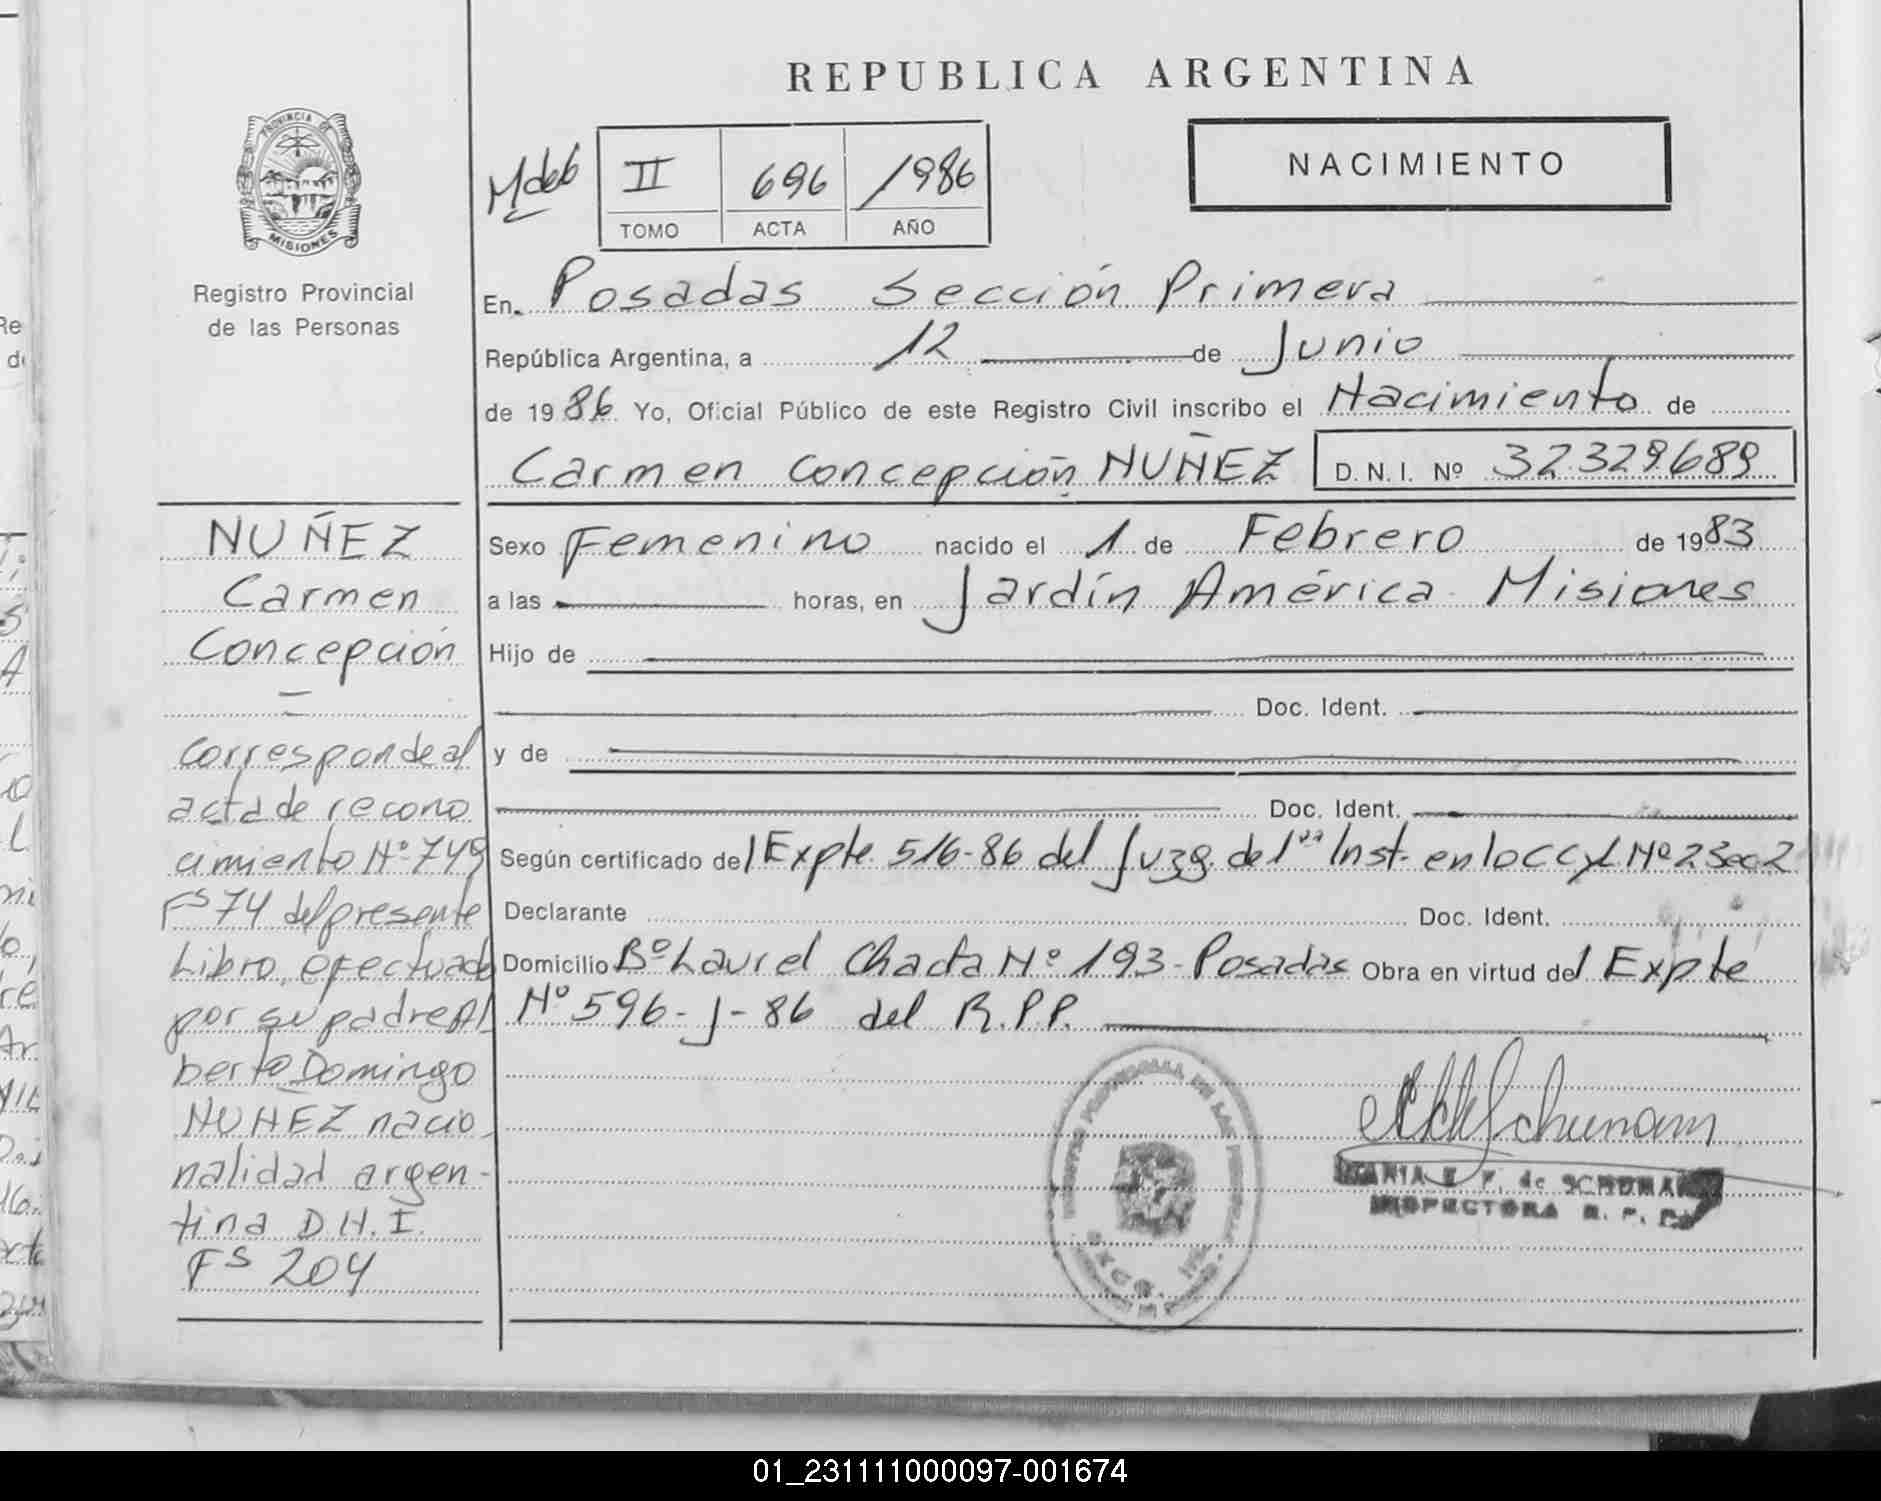 REPUBLICA ARGENTINA
PROVINCIA DE
MISIONES
Registro Provincial
de las Personas
II 696 1986
TOMO ACTA AÑO
NACIMIENTO
En Posadas Sección Primera
República Argentina, a 12 de Junio
de 1986 Yo, Oficial Público de este Registro Civil inscribo el Nacimiento de
Carmen Concepción NUÑEZ D.N.I. Nº 32329689
Sexo Femenino nacido el 1 de Febrero de 1983
a las horas, en Jardín América Misiones
Hijo de
Doc. Ident.
y de
Doc. Ident.
Según certificado del Expte. 516-86 del Juzg. de 1ra Inst. en lo CC y L Nº 2 Sec 2
Declarante Doc. Ident.
Domicilio Bº Laurel Chacra Nº 193 - Posadas Obra en virtud del Expte
Nº 596-J-86 del R.P.P.
NUÑEZ
Carmen
Concepción
Corresponde al
acta de recono
cimiento Nº 749
Fs 74 del presente
Libro, efectuado
por su padre Al
berto Domingo
NUÑEZ nacio
nalidad argen-
tina D.N.I.
Fs 204
de SCHUMAN
INSPECTORA R. P. P.
01_231111000097-001674